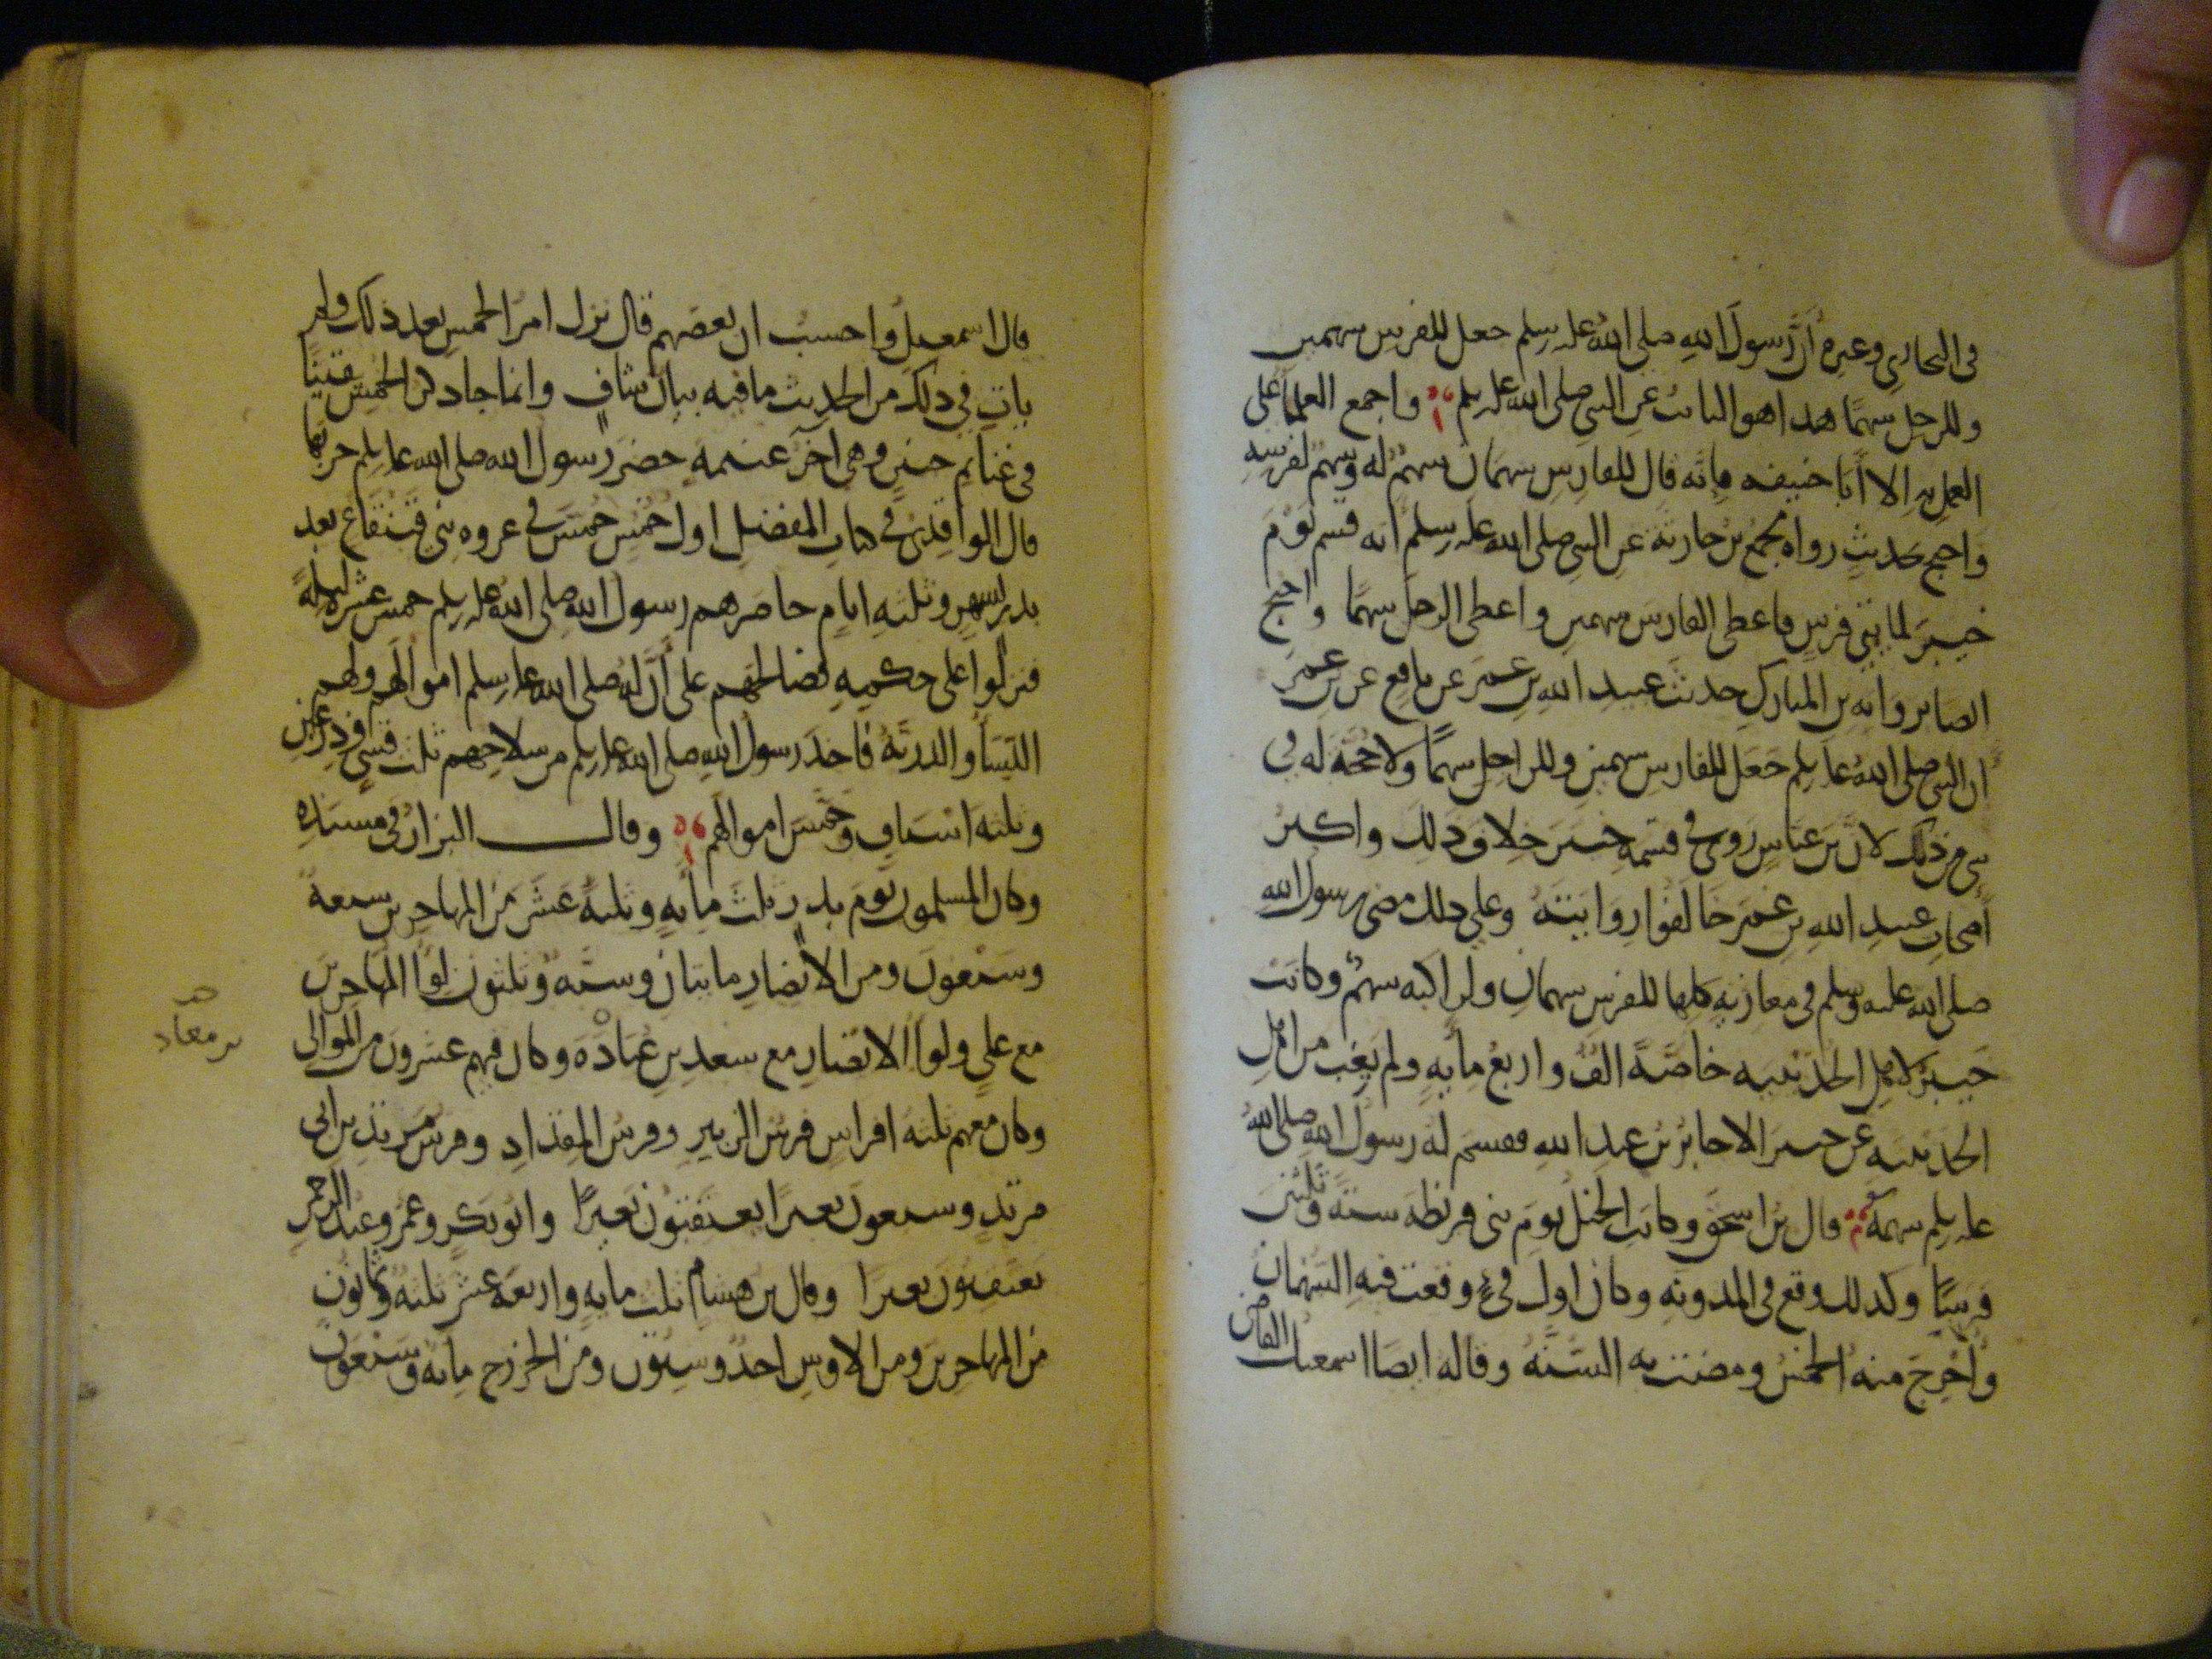 في البخاري وغيره أن رسول الله صلى الله عليه وسلم جعل للفرس سهمين
وللرجل سهمًا هذا هو الثابت عن النبي صلى الله عليه وسلم واجمع العلما على
العمل به الا أبا حنيفه فانه قال للفارس سهمان سهم له وسهم لفرسه
واحتج بحديث رواه مجمع بن حارثة عن النبي صلى الله عليه وسلم انه قسم يوم
خيبر لمايتي فرس فاعطى الفارس سهمين واعطى الرجل سهمًا واحتج
ايضا بروايه بن المبارك حديث عبيد الله بن عمر عن نافع عن بن عمر
ان النبي صلى الله عليه وسلم جعل للفارس سهمين وللراجل سهمًا ولا حجة له في
شي من ذلك لان بن عباس روى في قسمه خيبر خلاف ذلك واكثر
أصحاب عبيد الله بن عمر خالفوا روايته وعلى ذلك مضى رسول الله
صلى الله عليه وسلم في مغازيه كلها للفرس سهمان ولراكبه سهم وكانت
خيبر لاهل الحديبيه خاصة الف واربع مايه ولم يغب من اهل
الحديبيه عن خيبر الا جابر بن عبد الله فقسم له رسول الله صلى الله
عليه وسلم سهمه قال بن اسحق وكانت الخيل يوم بني قريظه ستة وثلثين
فرسًا وكذلك وقع في المدونه وكان اول فيء وقعت فيه السهمان
وأخرج منه الخمس ومضت به السنه وقاله ايضا اسمعيل القاضي
قال اسمعيل واحسب ان بعضهم قال نزل امر الخمس بعد ذلك ولم
يات في ذلك من الحديث ما فيه بيان شاف وانما جا ذكر الخمس يقينًا
في غنايم حنين وهي اخر غنيمه حضر رسول الله صلى الله عليه وسلم حربها
قال الواقدي في كتاب المفضل اول خمس خمس في غزوه بني قينقاع بعد
بدر بشهر وثلثه ايام حاصرهم رسول الله صلى الله عليه وسلم خمس عشره ليلة
فنزلوا على حكمه فصالحهم على أن له صلى الله عليه وسلم اموالهم ولهم
النسا والذرية فاخذ رسول الله صلى الله عليه وسلم من سلاحهم ثلث قسي ودرعين
وثلثه اسياف وخمس اموالهم وقال البزار في مسنده
وكان المسلمون يوم بدر ثلث مايه وثلثة عشر من المهاجرين سبعة
وسبعون ومن الانصار مايتان وسته وثلثون لوا المهاجرين
مع علي ولوا الانصار مع سعد بن عبادة وكان فيهم عشرون من الموالي
وكان معهم ثلثه افراس فرس الزبير وفرس المقداد وفرس مرثد بن ابي
مرثد وسبعون بعيرا يعتقبون بعيرًا وابو بكر وعمر وعبد الرحمن
يعتقبون بعيرا وقال بن هشام ثلث مايه واربعة عشر ثلثة وثمانون
من المهاجرين ومن الاوس احد وستون ومن الخزرج مايه وسبعون
بن معاد